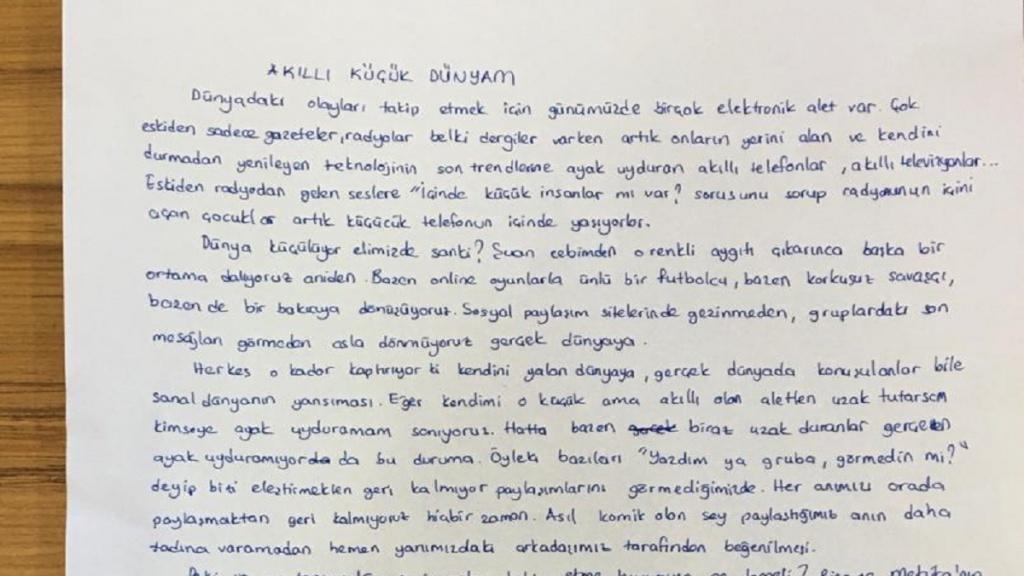 AKILLI KÜÇÜK DÜNYAM
Dünyadaki olayları takip etmek için günümüzde birçok elektronik alet var. Çok
eskiden sadece gazeteler, radyolar belki dergiler varken artık onların yerini alan ve kendini
durmadan yenileyen teknolojinin son trendlerine ayak uyduran akıllı telefonlar, akıllı televizyonlar...
Eskiden radyodan gelen seslere "İçinde küçük insanlar mı var? sorusunu sorup radyosunun içini
açan çocuklar artık küçücük telefonun içinde yaşıyorlar.
Dünya küçülüyor elimizde sanki? Şuan cebimden o renkli aygıtı çıkarınca başka bir
ortama dalıyoruz aniden. Bazen online oyunlarla ünlü bir futbolcu, bazen korkusuz savaşçı,
bazen de bir bakıcıya dönüşüyoruz. Sosyal paylaşım sitelerinde gezinmeden, gruplardaki son
mesajları görmeden asla dönmüyoruz gerçek dünyaya.
Herkes o kadar kaptırıyor ki kendini yalan dünyaya, gerçek dünyada konuşulanlar bile
sanal dünyanın yansıması. Eğer kendimi o küçük ama akıllı olan aletten uzak tutarsam
kimseye ayak uyduramam sanıyoruz. Hatta bazen biraz uzak duranlar gerçekten
ayak uyduramıyor da bu duruma. Öyleki bazıları "Yazdım ya gruba, görmedin mi?"
deyip bizi eleştirmekten geri kalmıyor paylaşımlarını görmediğimizde. Her anımızı orada
paylaşmaktan geri kalmıyoruz hiçbir zaman. Asıl komik olan şey paylaştığımız anın daha
tadına varamadan hemen yanımızdaki arkadaşımız tarafından beğenilmesi.